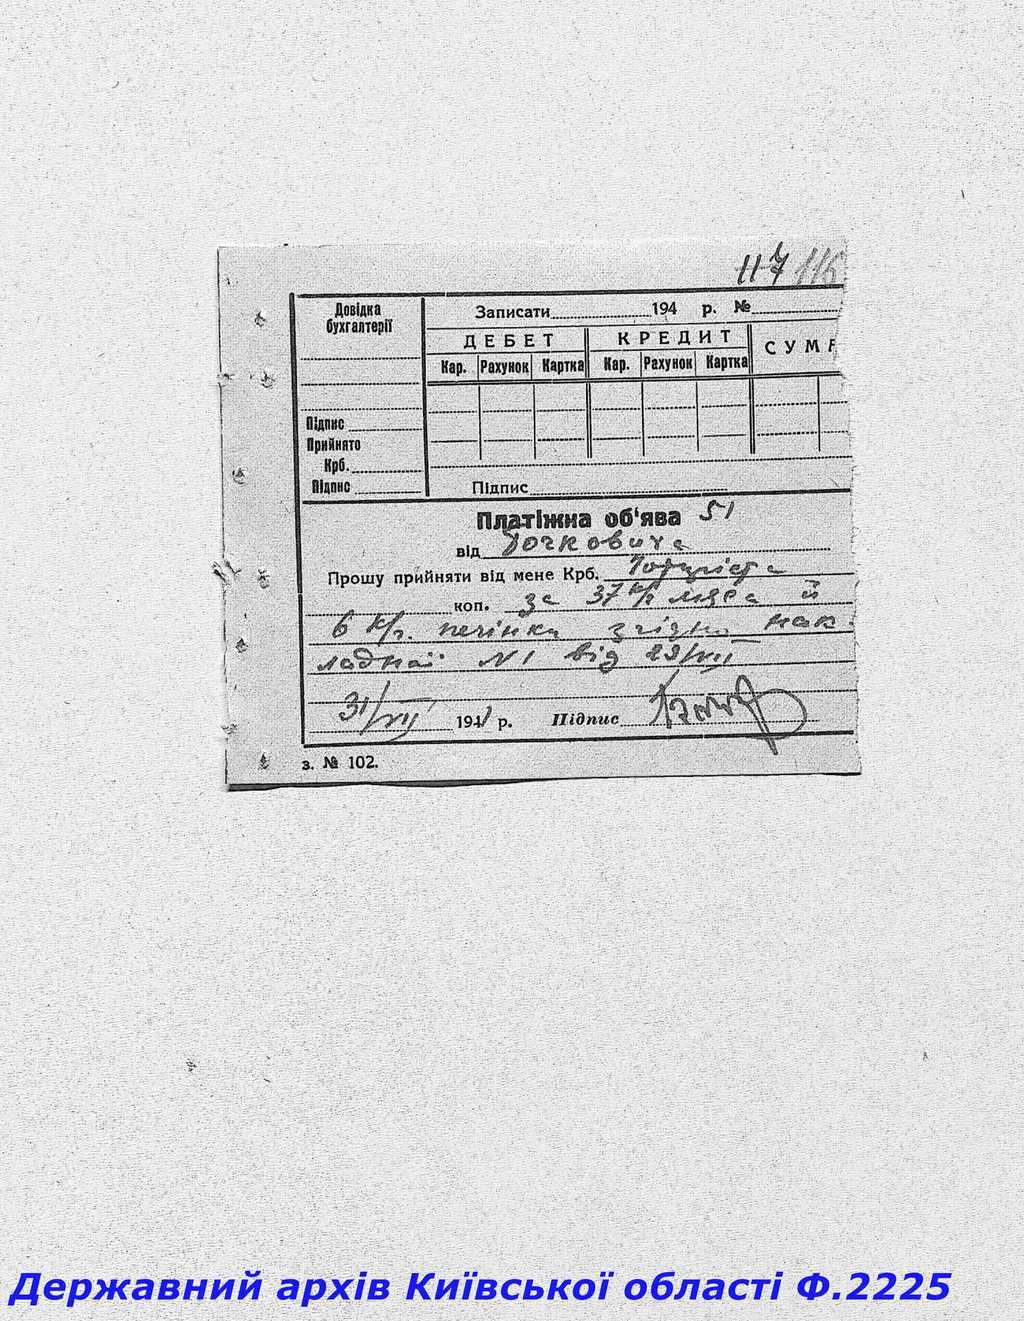 117 116
Довідка
бухгалтерії
Записати 194 р. №
ДЕБЕТ КРЕДИТ СУМ
Кар. Рахунок Картка Кар. Рахунок Картка
Підпис
Прийнято
Крб.
Підпис
Підпис
Платіжна об'ява 51
від
Прошу прийняти від мене Крб.
коп. за 37 к/г мяса й
6 к/г. печінки згідно нак-
ладної N1 від 29/VII
31/VII 1941 р. Підпис
з. № 102.
Державний архів Київської області Ф.2225